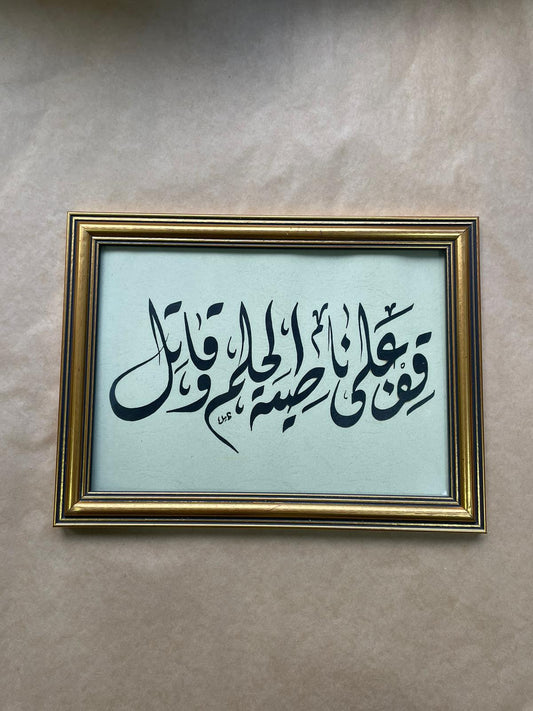 قِفْ عَلَى نَاصِيَةِ الْحُلمِ وَقَاتِل